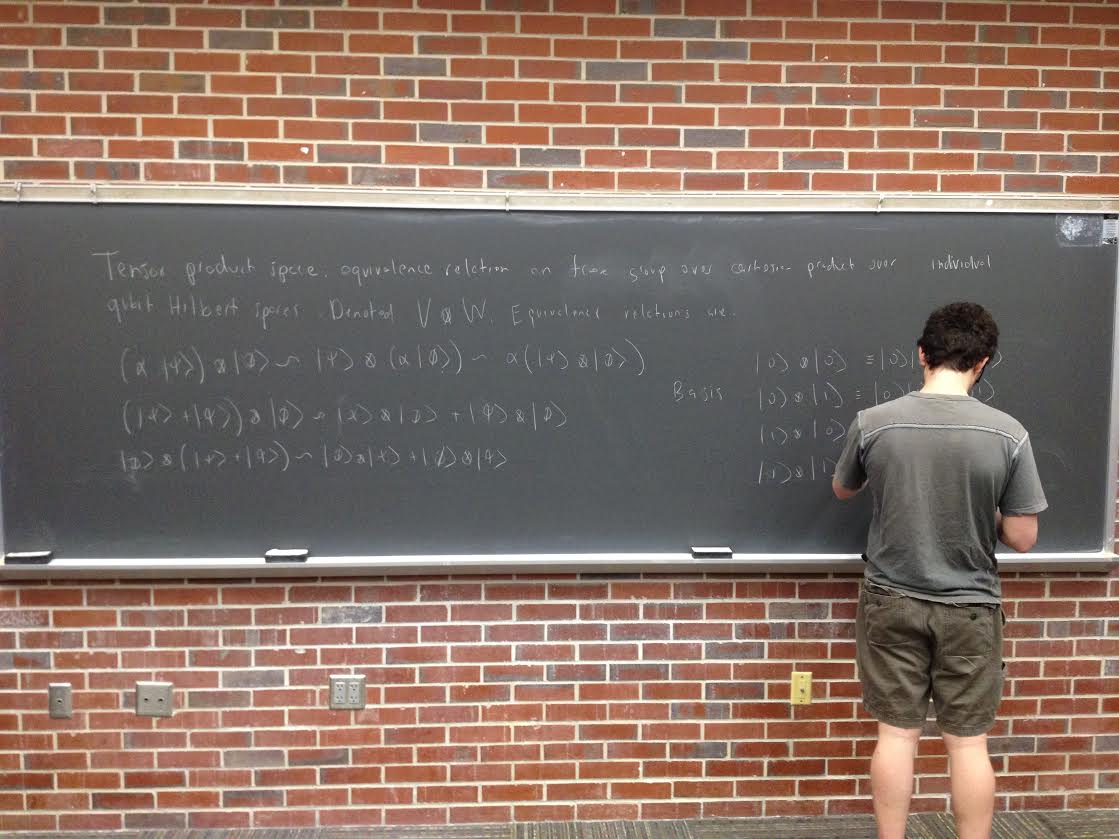 Tensor product space: equivalence relation on free group over cartesian product over individual
qubit Hilbert spaces. Denoted V ⊗ W. Equivalence relations are:
(α|ψ⟩) ⊗ |φ⟩ ~ |ψ⟩ ⊗ (α|φ⟩) ~ α(|ψ⟩ ⊗ |φ⟩)
(|ψ⟩ + |φ⟩) ⊗ |φ⟩ ~ |ψ⟩ ⊗ |φ⟩ + |φ⟩ ⊗ |φ⟩
|φ⟩ ⊗ (|ψ⟩ + |φ⟩) ~ |φ⟩ ⊗ |ψ⟩ + |φ⟩ ⊗ |φ⟩
Basis
|0⟩ ⊗ |0⟩ ≡ |0⟩|
|0⟩ ⊗ |1⟩ ≡ |0⟩
|1⟩ ⊗ |0⟩
|1⟩ ⊗ |1